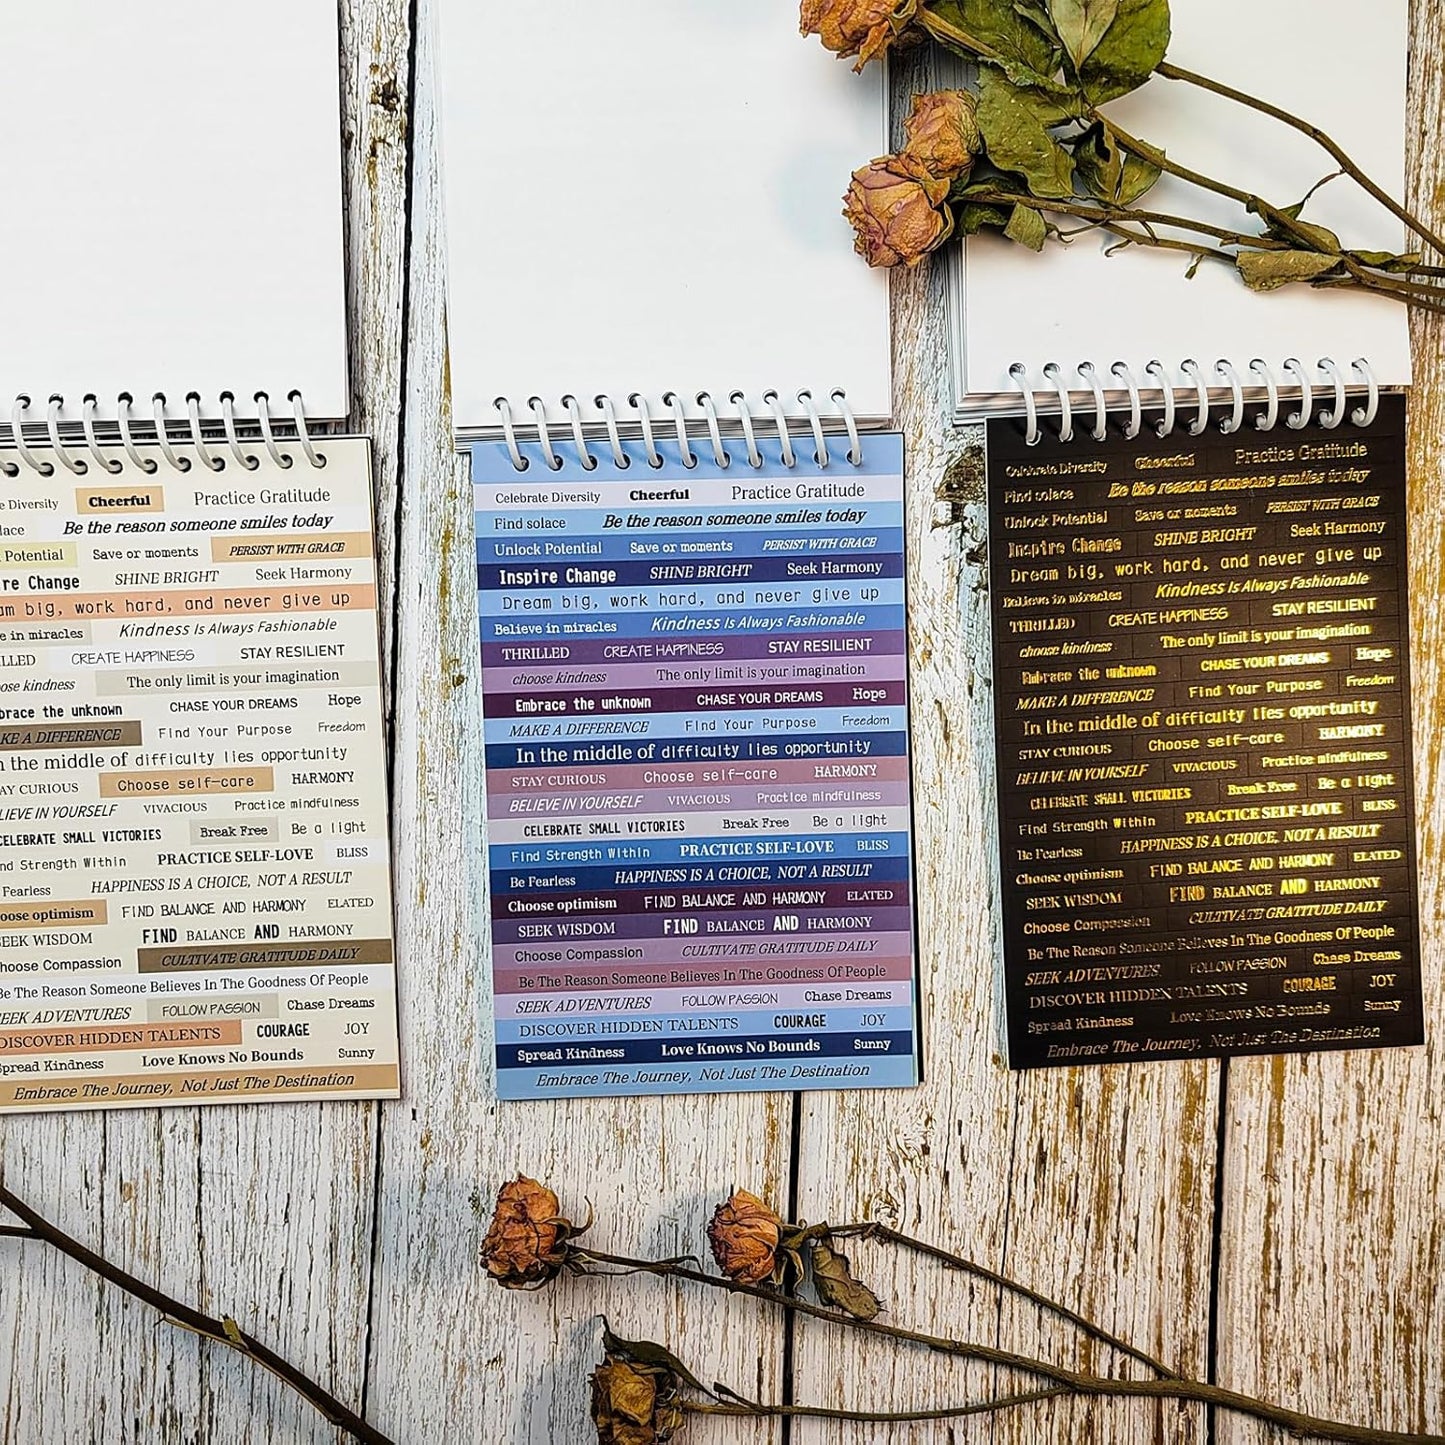 e Diversity Cheerful Practice Gratitude
lace Be the reason someone smiles today
Potential Save or moments PERSIST WITH GRACE
re Change SHINE BRIGHT Seek Harmony
am big, work hard, and never give up
e in miracles Kindness Is Always Fashionable
LLED CREATE HAPPINESS STAY RESILIENT
ose kindness The only limit is your imagination
brace the unknown CHASE YOUR DREAMS Hope
KE A DIFFERENCE Find Your Purpose Freedom
n the middle of difficulty lies opportunity
AY CURIOUS Choose self-care HARMONY
LIEVE IN YOURSELF VIVACIOUS Practice mindfulness
CELEBRATE SMALL VICTORIES Break Free Be a light
nd Strength Within PRACTICE SELF-LOVE BLISS
Fearless HAPPINESS IS A CHOICE, NOT A RESULT
oose optimism FIND BALANCE AND HARMONY ELATED
EEK WISDOM FIND BALANCE AND HARMONY
hoose Compassion CULTIVATE GRATITUDE DAILY
Be The Reason Someone Believes In The Goodness Of People
EEK ADVENTURES FOLLOW PASSION Chase Dreams
DISCOVER HIDDEN TALENTS COURAGE JOY
Spread Kindness Love Knows No Bounds Sunny
Embrace The Journey, Not Just The Destination
Celebrate Diversity Cheerful Practice Gratitude
Find solace Be the reason someone smiles today
Unlock Potential Save or moments PERSIST WITH GRACE
Inspire Change SHINE BRIGHT Seek Harmony
Dream big, work hard, and never give up
Believe in miracles Kindness Is Always Fashionable
THRILLED CREATE HAPPINESS STAY RESILIENT
choose kindness The only limit is your imagination
Embrace the unknown CHASE YOUR DREAMS Hope
MAKE A DIFFERENCE Find Your Purpose Freedom
In the middle of difficulty lies opportunity
STAY CURIOUS Choose self-care HARMONY
BELIEVE IN YOURSELF VIVACIOUS Practice mindfulness
CELEBRATE SMALL VICTORIES Break Free Be a light
Find Strength Within PRACTICE SELF-LOVE BLISS
Be Fearless HAPPINESS IS A CHOICE, NOT A RESULT
Choose optimism FIND BALANCE AND HARMONY ELATED
SEEK WISDOM FIND BALANCE AND HARMONY
Choose Compassion CULTIVATE GRATITUDE DAILY
Be The Reason Someone Believes In The Goodness Of People
SEEK ADVENTURES FOLLOW PASSION Chase Dreams
DISCOVER HIDDEN TALENTS COURAGE JOY
Spread Kindness Love Knows No Bounds Sunny
Embrace The Journey, Not Just The Destination
Celebrate Diversity Cheerful Practice Gratitude
Find solace Be the reason someone smiles today
Unlock Potential Save or moments PERSIST WITH GRACE
Inspire Change SHINE BRIGHT Seek Harmony
Dream big, work hard, and never give up
Believe in miracles Kindness Is Always Fashionable
THRILLED CREATE HAPPINESS STAY RESILIENT
choose kindness The only limit is your imagination
Embrace the unknown CHASE YOUR DREAMS Hope
MAKE A DIFFERENCE Find Your Purpose Freedom
In the middle of difficulty lies opportunity
STAY CURIOUS Choose self-care HARMONY
BELIEVE IN YOURSELF VIVACIOUS Practice mindfulness
CELEBRATE SMALL VICTORIES Break Free Be a light
Find Strength Within PRACTICE SELF-LOVE BLISS
Be Fearless HAPPINESS IS A CHOICE, NOT A RESULT
Choose optimism FIND BALANCE AND HARMONY ELATED
SEEK WISDOM FIND BALANCE AND HARMONY
Choose Compassion CULTIVATE GRATITUDE DAILY
Be The Reason Someone Believes In The Goodness Of People
SEEK ADVENTURES FOLLOW PASSION Chase Dreams
DISCOVER HIDDEN TALENTS COURAGE JOY
Spread Kindness Love Knows No Bounds Sunny
Embrace The Journey, Not Just The Destination